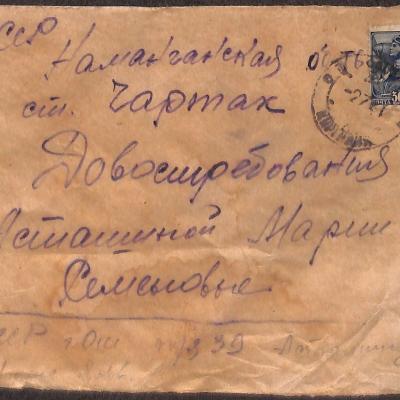 ССР
Наманганская область
ст. Чартак
Довостребования
Асташиной Марии
Семеновье
ССР г. Ош п/я 39